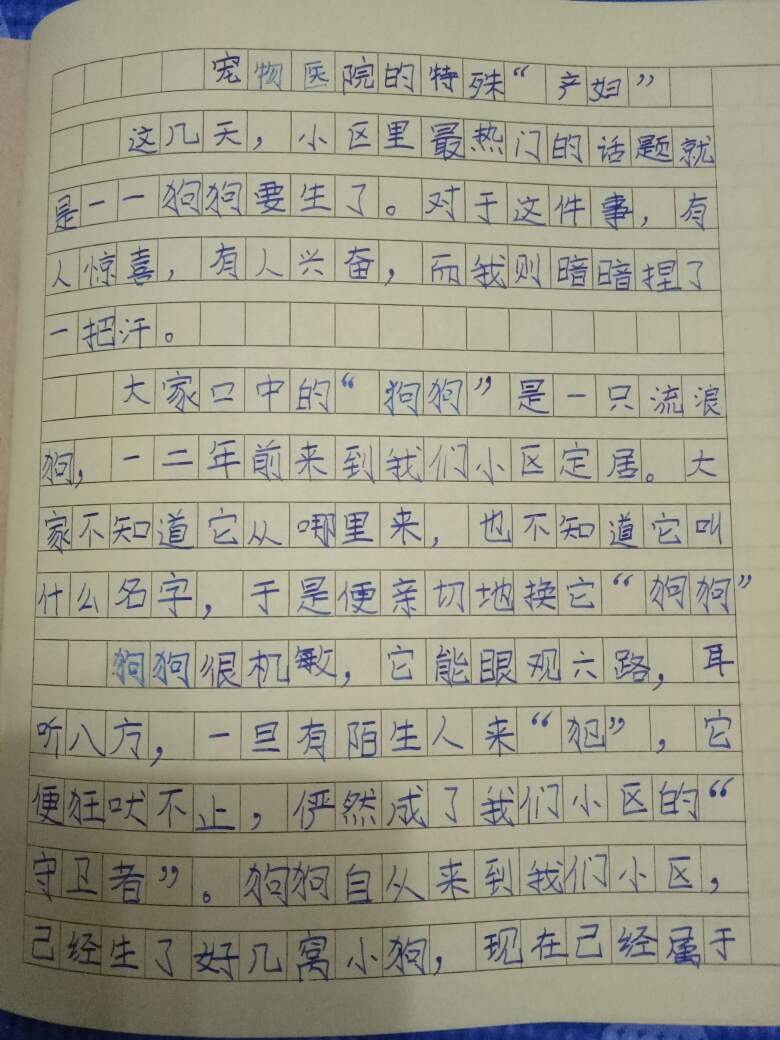 宠物医院的特殊“产妇”
这几天，小区里最热门的话题就
是一一狗狗要生了。对于这件事，有
人惊喜，有人兴奋，而我则暗暗捏了
一把汗。
大家口中的“狗狗”是一只流浪
狗，一二年前来到我们小区定居。大
家不知道它从哪里来，也不知道它叫
什么名字，于是便亲切地换它“狗狗”
狗狗很机敏，它能眼观六路，耳
听八方，一旦有陌生人来“犯”，它
便狂吠不止，俨然成了我们小区的“
守卫者”。狗狗自从来到我们小区，
已经生了好几窝小狗，现在已经属于